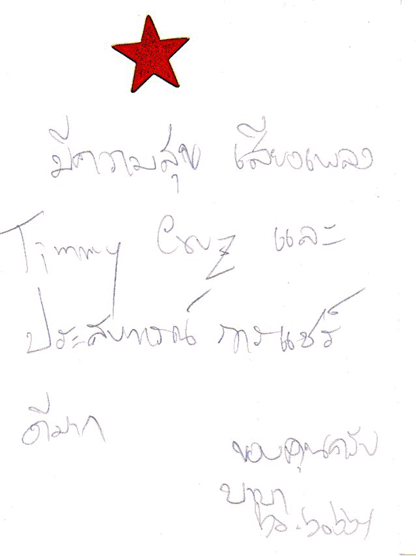 มีความสุข เสียงเพลง
Timmy Cruz และ
ประสบการณ์ การแชร์
ดีมาก
ขอบคุณครับ
บาบา